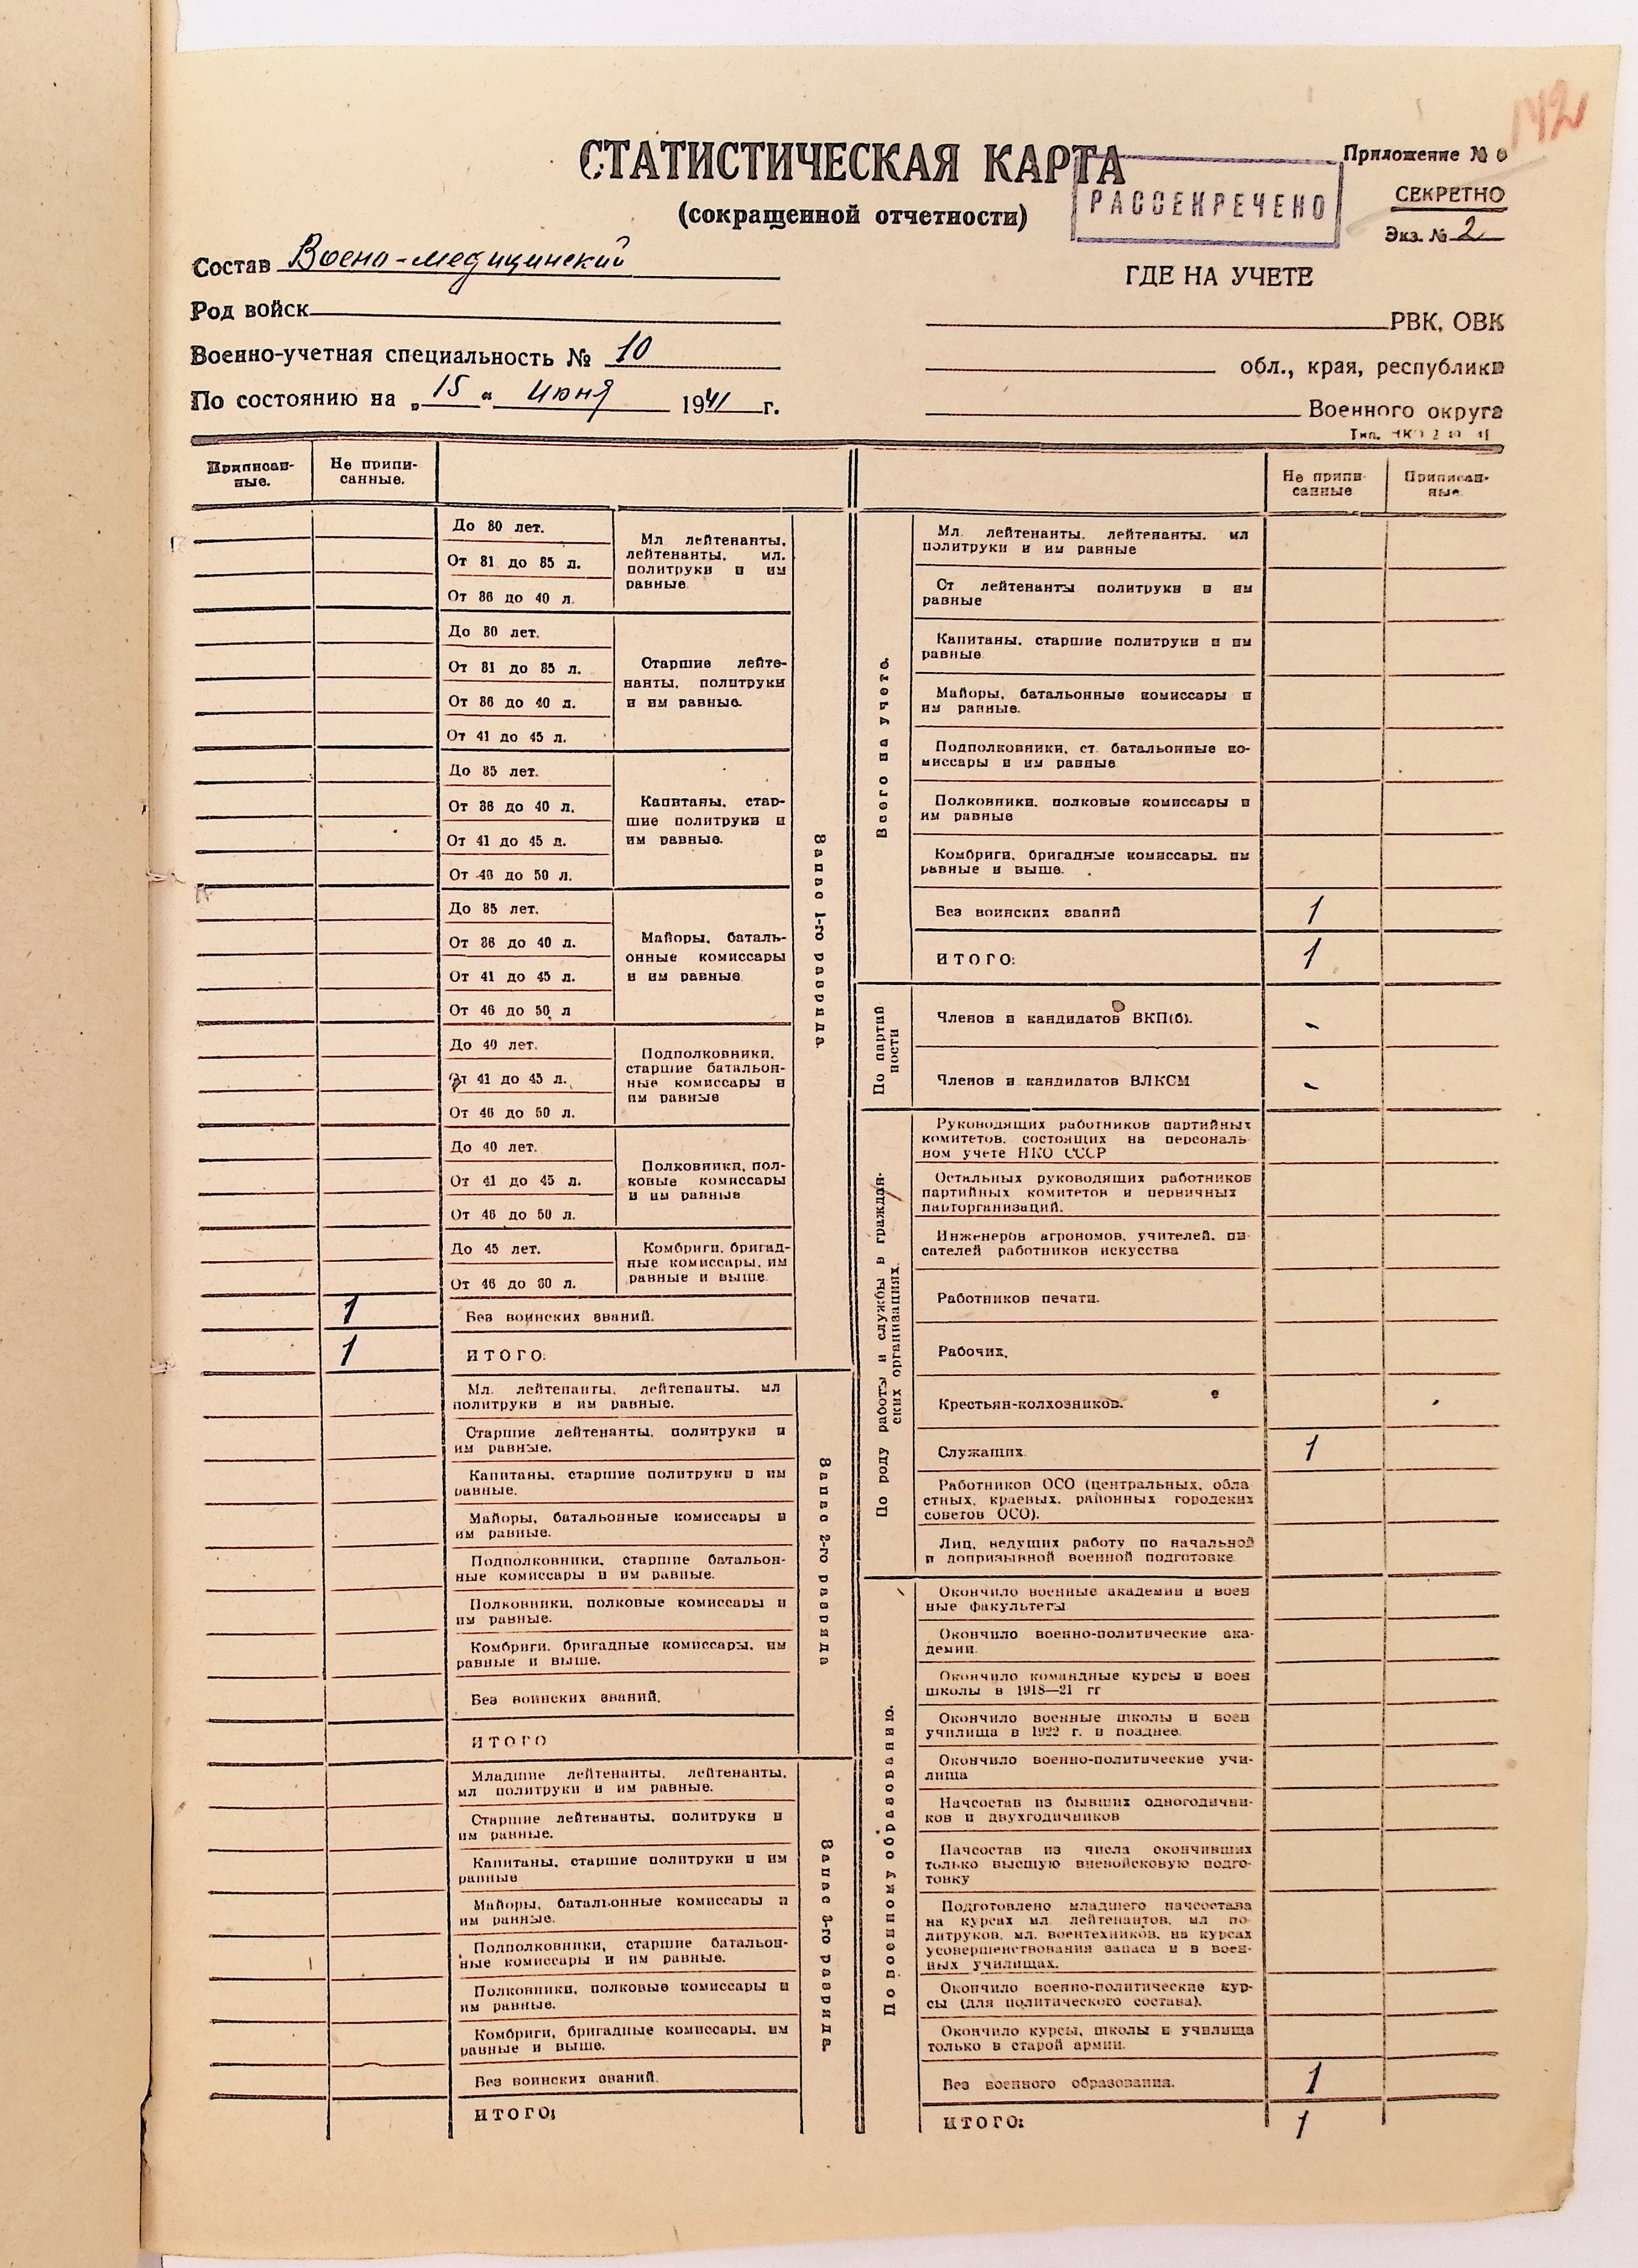 142
СТАТИСТИЧЕСКАЯ КАРТА
(сокращенной отчетности)
РАССЕКРЕЧЕНО
Приложение №
СЕКРЕТНО
Экз. № 2
Состав Военно-медицинский
Род войск
Военно-учетная специальность № 10
По состоянию на „15“ июня 1941 г.
ГДЕ НА УЧЕТЕ
РВК, ОВК
обл., края, республики
Военного округа
Тип.
Приписан-
ные.
Не припи-
санные.
До 30 лет.
От 31 до 35 л.
От 36 до 40 л.
Мл лейтенанты,
лейтенанты, мл.
политруки и им
равные.
До 30 лет.
От 31 до 35 л.
От 36 до 40 л.
От 41 до 45 л.
Старшие лейте-
нанты, политруки
и им равные.
До 35 лет.
От 36 до 40 л.
От 41 до 45 л.
От 46 до 50 л.
Капитаны, стар-
шие политруки и
им равные.
До 35 лет.
От 36 до 40 л.
От 41 до 45 л.
От 46 до 50 л
Майоры, баталь-
онные комиссары
и им равные
До 40 лет.
От 41 до 45 л.
От 46 до 50 л.
Подполковники,
старшие батальон-
ные комиссары и
им равные
До 40 лет.
От 41 до 45 л.
От 46 до 50 л.
Полковники, пол-
ковые комиссары
и им равные
До 45 лет.
От 46 до 60 л.
Комбриги, бригад-
ные комиссары, им
равные и выше.
1 Без воинских званий.
1 ИТОГО:
Запас 1-го разряда.
Мл. лейтенанты, лейтенанты, мл
политруки и им равные.
Старшие лейтенанты, политруки и
им равные.
Капитаны, старшие политруки и им
равные.
Майоры, батальонные комиссары и
им равные.
Подполковники, старшие батальон-
ные комиссары и им равные.
Полковники, полковые комиссары и
им равные.
Комбриги, бригадные комиссары, им
равные и выше.
Без воинских званий.
ИТОГО
Запас 2-го разряда
Младшие лейтенанты, лейтенанты,
мл политруки и им равные.
Старшие лейтенанты, политруки и
им равные.
Капитаны, старшие политруки и им
равные
Майоры, батальонные комиссары и
им равные.
Подполковники, старшие батальон-
ные комиссары и им равные.
Полковники, полковые комиссары и
им равные.
Комбриги, бригадные комиссары, им
равные и выше.
Без воинских званий.
ИТОГО:
Запас 3-го разряда.
Не припи-
санные
Приписан-
ные
Всего на учете.
Мл. лейтенанты, лейтенанты, мл
политруки и им равные
Ст лейтенанты политруки и им
равные
Капитаны, старшие политруки и им
равные.
Майоры, батальонные комиссары и
им равные.
Подполковники, ст. батальонные ко-
миссары и им равные
Полковники, полковые комиссары и
им равные
Комбриги, бригадные комиссары, им
равные и выше.
Без воинских званий 1
ИТОГО: 1
По партий
ности
Членов и кандидатов ВКП(б). -
Членов и кандидатов ВЛКСМ -
По роду работы и службы в граждан-
ских организациях.
Руководящих работников партийных
комитетов, состоящих на персональ-
ном учете НКО СССР
Остальных руководящих работников
партийных комитетов и первичных
парторганизаций.
Инженеров агрономов, учителей, пи-
сателей работников искусства
Работников печати.
Рабочих.
Крестьян-колхозников.
Служащих 1
Работников ОСО (центральных, обла
стных, краевых, районных городских
советов ОСО).
Лиц, ведущих работу по начальной
и допризывной военной подготовке
По военному образованию.
Окончило военные академии и воен
ные факультеты
Окончило военно-политические ака-
демии.
Окончило командные курсы и воен
школы в 1918—21 гг
Окончило военные школы и воен
училища в 1922 г. и позднее.
Окончило военно-политические учи-
лища
Начсостав из бывших одногодични-
ков и двухгодичников
Начсостав из числа окончивших
только высшую вневойсковую подго-
товку
Подготовлено младшего начсостава
на курсах мл. лейтенантов, мл по
литруков, мл. воентехников, на курсах
усовершенствования запаса и в воен-
ных училищах.
Окончило военно-политические кур-
сы (для политического состава).
Окончило курсы, школы и училища
только в старой армии.
Без военного образования. 1
ИТОГО: 1